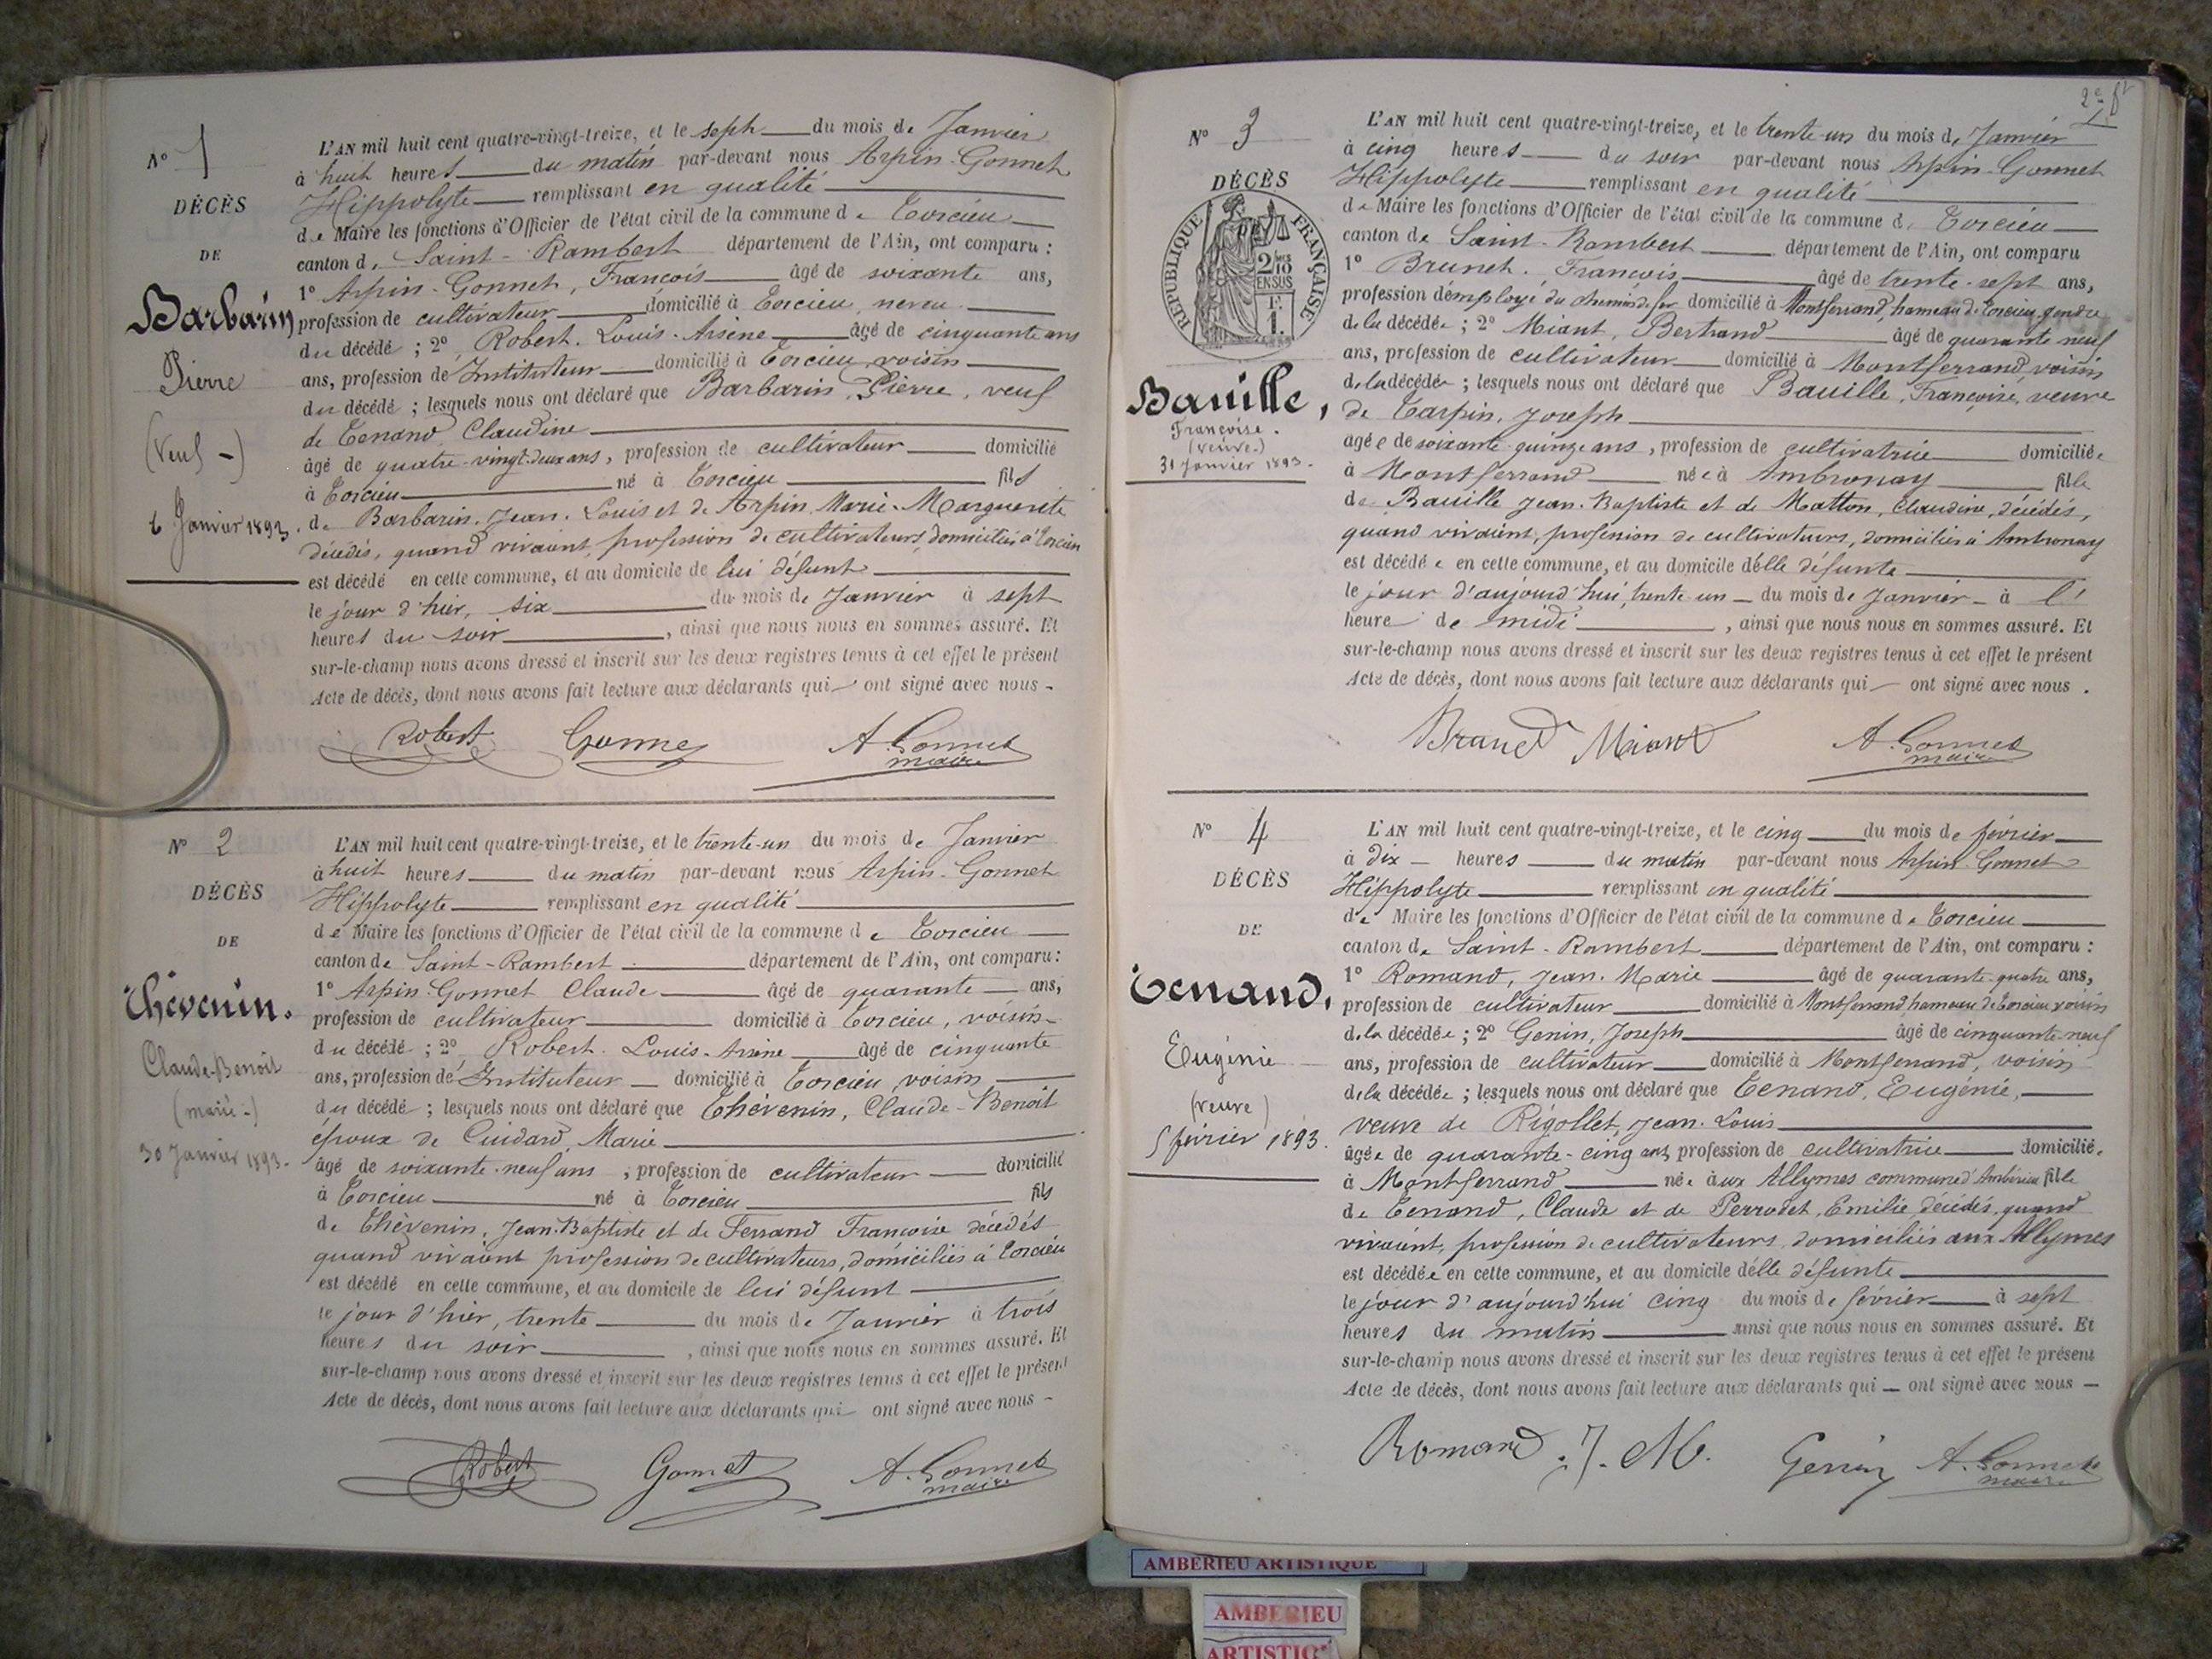 N° 1
DÉCÈS
DE
Barbarin
Pierre
(Veuf -)
6 Janvier 1893.
L'AN mil huit cent quatre-vingt-treize, et le sept du mois de Janvier
à huit heures du matin par-devant nous Arpin-Gonnet
Hippolyte remplissant en qualité
de Maire les fonctions d'Officier de l'état civil de la commune de Torcieu
canton de Saint-Rambert département de l'Ain, ont comparu :
1° Arpin-Gonnet, François âgé de soixante ans,
profession de cultivateur domicilié à Torcieu, neveu
du décédé ; 2° Robert. Louis-Arsène âgé de cinquante ans
ans, profession de Instituteur domicilié à Torcieu, voisin
du décédé ; lesquels nous ont déclaré que Barbarin, Pierre, veuf
de Tenand, Claudine
âgé de quatre-vingt-deux ans, profession de cultivateur domicilié
à Torcieu né à Torcieu fils
de Barbarin, Jean-Louis et de Arpin, Marie-Marguerite
décédés, quand vivaient, profession de cultivateurs, domiciliés à Torcieu
est décédé en cette commune, et au domicile de lui défunt
le jour d'hier, six du mois de Janvier à sept
heures du soir, ainsi que nous nous en sommes assuré. Et
sur-le-champ nous avons dressé et inscrit sur les deux registres tenus à cet effet le présent
Acte de décès, dont nous avons fait lecture aux déclarants qui ont signé avec nous -
Robert Gonnet A. Gonnet
maire
N° 2
DÉCÈS
DE
Thévenin.
Claude-Benoit
(marié -)
30 Janvier 1893.
L'AN mil huit cent quatre-vingt-treize, et le trente-un du mois de Janvier
à huit heures du matin par-devant nous Arpin-Gonnet
Hippolyte remplissant en qualité
de Maire les fonctions d'Officier de l'état civil de la commune de Torcieu
canton de Saint-Rambert département de l'Ain, ont comparu :
1° Arpin-Gonnet Claude âgé de quarante ans,
profession de cultivateur domicilié à Torcieu, voisin
du décédé ; 2° Robert. Louis-Arsène âgé de cinquante
ans, profession de Instituteur domicilié à Torcieu, voisin
du décédé ; lesquels nous ont déclaré que Thévenin, Claude-Benoit
époux de Guidard, Marie
âgé de soixante-neuf ans, profession de cultivateur domicilié
à Torcieu né à Torcieu fils
de Thévenin, Jean-Baptiste et de Ferrand Françoise décédés
quand vivaient profession de cultivateurs, domiciliés à Torcieu
est décédé en cette commune, et au domicile de lui défunt
le jour d'hier, trente du mois de Janvier à trois
heures du soir, ainsi que nous nous en sommes assuré. Et
sur-le-champ nous avons dressé et inscrit sur les deux registres tenus à cet effet le présent
Acte de décès, dont nous avons fait lecture aux déclarants qui ont signé avec nous -
Robert Gonnet A. Gonnet
maire
N° 3
DÉCÈS
RÉPUBLIQUE FRANÇAISE
2/10 EN SUS
1 F.
Bauille,
Françoise.
(veuve.)
31 Janvier 1893.
L'AN mil huit cent quatre-vingt-treize, et le trente-un du mois de Janvier
à cinq heures du soir par-devant nous Arpin-Gonnet
Hippolyte remplissant en qualité
de Maire les fonctions d'Officier de l'état civil de la commune de Torcieu
canton de Saint-Rambert département de l'Ain, ont comparu
1° Brunet. François âgé de trente-sept ans,
profession d'employé du chemin de fer domicilié à Montferrand, hameau de Torcieu, gendre
de la décédée ; 2° Miant, Bertrand âgé de quarante-neuf
ans, profession de cultivateur domicilié à Montferrand, voisin
de la décédée ; lesquels nous ont déclaré que Bauille, Françoise, veuve
de Tarpin, Joseph
âgée de soixante-quinze ans, profession de cultivatrice domiciliée
à Montferrand née à Ambronay fille
de Bauille Jean-Baptiste et de Matton, Claudine, décédés,
quand vivaient, profession de cultivateurs, domiciliés à Ambronay
est décédée en cette commune, et au domicile d'elle défunte
le jour d'aujourd'hui, trente un du mois de Janvier à l'
heure de midi, ainsi que nous nous en sommes assuré. Et
sur-le-champ nous avons dressé et inscrit sur les deux registres tenus à cet effet le présent
Acte de décès, dont nous avons fait lecture aux déclarants qui ont signé avec nous.
Brunet Miant A. Gonnet
maire
N° 4
DÉCÈS
DE
Tenand,
Eugénie
(veuve)
5 février 1893.
L'AN mil huit cent quatre-vingt-treize, et le cinq du mois de février
à dix heures du matin par-devant nous Arpin-Gonnet
Hippolyte remplissant en qualité
de Maire les fonctions d'Officier de l'état civil de la commune de Torcieu
canton de Saint-Rambert département de l'Ain, ont comparu :
1° Romand, Jean-Marie âgé de quarante-quatre ans,
profession de cultivateur domicilié à Montferrand hameau de Torcieu voisin
de la décédée ; 2° Genin, Joseph âgé de cinquante-neuf
ans, profession de cultivateur domicilié à Montferrand, voisin
de la décédée ; lesquels nous ont déclaré que Tenand, Eugénie,
veuve de Rigollet, Jean-Louis
âgée de quarante-cinq ans, profession de cultivatrice domiciliée
à Montferrand née aux Allymes commune d'Ambérieu fille
de Tenand, Claude et de Perrodet, Emilie, décédés, quand
vivaient, profession de cultivateurs, domiciliés aux Allymes
est décédée en cette commune, et au domicile d'elle défunte
le jour d'aujourd'hui cinq du mois de février à sept
heures du matin ainsi que nous nous en sommes assuré. Et
sur-le-champ nous avons dressé et inscrit sur les deux registres tenus à cet effet le présent
Acte de décès, dont nous avons fait lecture aux déclarants qui ont signé avec nous
Romand. J. M. Genin A. Gonnet
maire
AMBERIEU ARTISTIQUE
AMBERIEU
ARTISTIQ